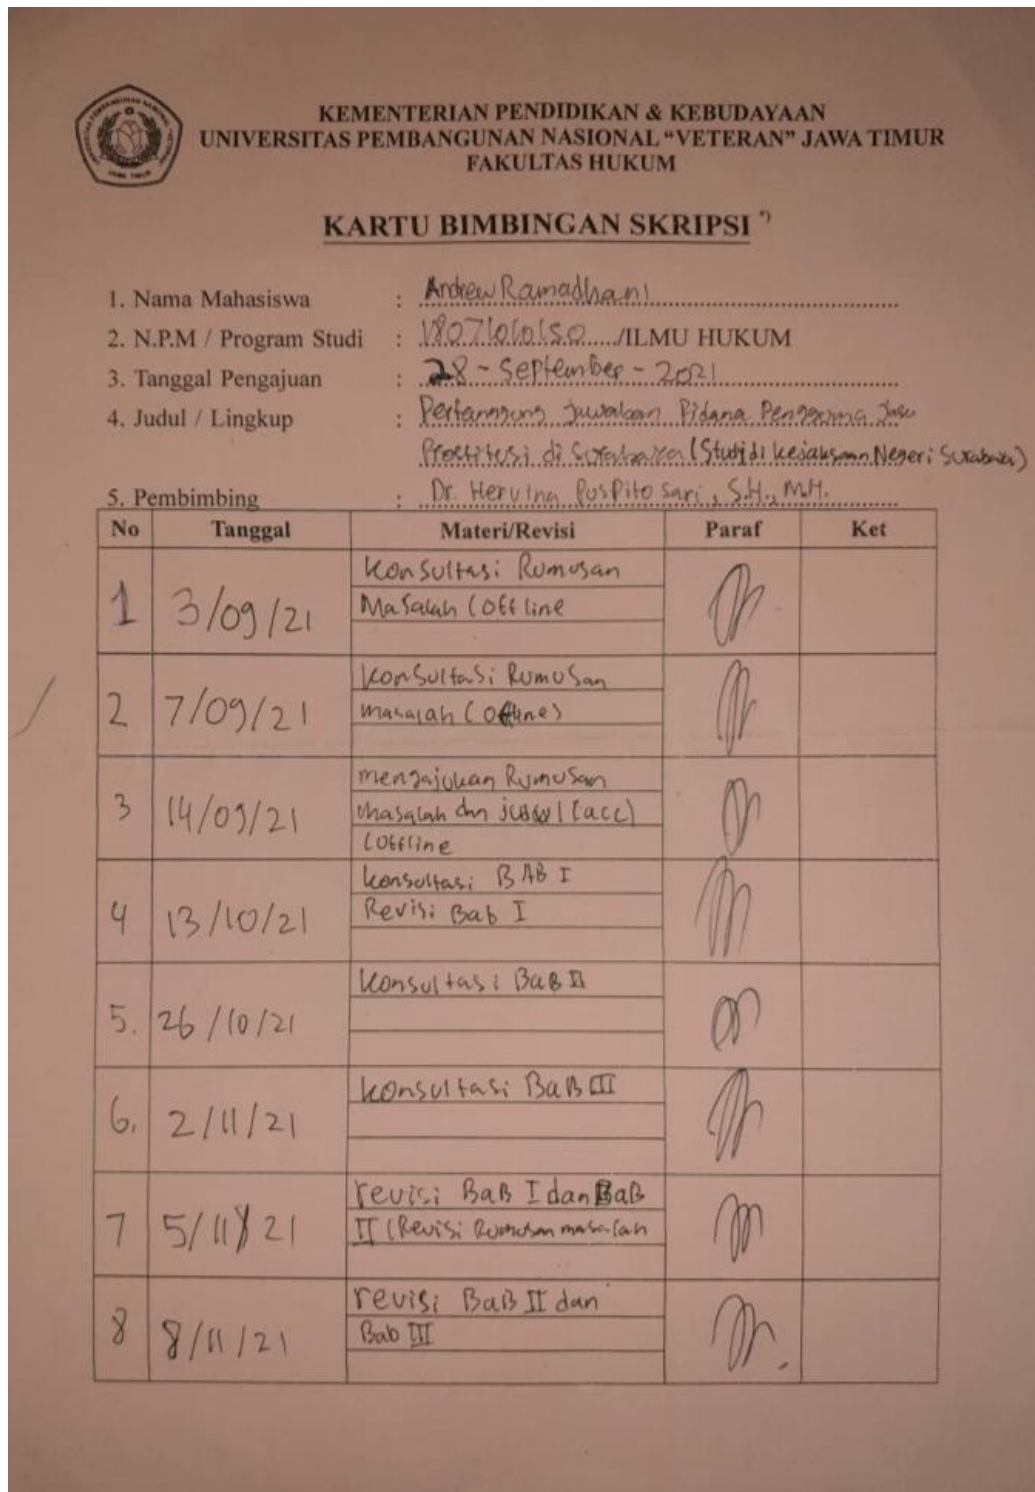 KEMENTERIAN PENDIDIKAN & KEBUDAYAAN
UNIVERSITAS PEMBANGUNAN NASIONAL "VETERAN" JAWA TIMUR
FAKULTAS HUKUM
JAWA TIMUR
KARTU BIMBINGAN SKRIPSI *)
1. Nama Mahasiswa : Andrew Ramadhani
2. N.P.M / Program Studi : 18071010150 /ILMU HUKUM
3. Tanggal Pengajuan : 28 - September - 2021
4. Judul / Lingkup : Pertanggung jawaban Pidana Pengguna Jasa
Prostitusi di Surabaya (Studi di Kejaksaan Negeri Surabaya)
5. Pembimbing : Dr. Hervina Puspitosari, S.H., M.H.
No Tanggal Materi/Revisi Paraf Ket
Konsultasi Rumusan
1 3/09/21 Masalah (Offline
Konsultasi Rumusan
2 7/09/21 masalah (Offline)
mengajukan Rumusan
3 14/09/21 Masalah dan judul (acc)
(Offline
Konsultasi BAB I
4 13/10/21 Revisi Bab I
Konsultasi BaB II
5. 26/10/21
Konsultasi BaB III
6. 2/11/21
revisi BaB I dan BaB
7 5/11/21 II (Revisi Rumusan masalah
revisi BaB II dan
8 8/11/21 Bab III